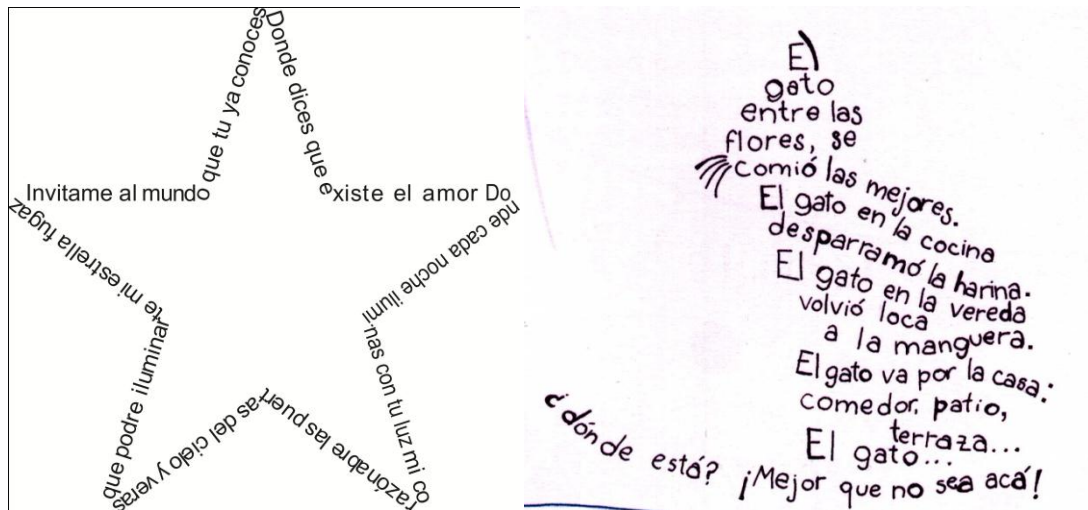 Invitame al mundo
que tu ya conoces
Donde dices que e
xiste el amor Do
nde cada noche ilumi
nas con tu luz mi co
razónabre las puert
as del cielo y veras
que podre iluminar
te mi estrella fugaz
El
gato
entre las
flores, se
comió las mejores.
El gato en la cocina
desparramó la harina.
El gato en la vereda
volvió loca
a la manguera.
El gato va por la casa:
comedor, patio,
terraza...
El gato...
¿dónde está? ¡Mejor que no sea acá!